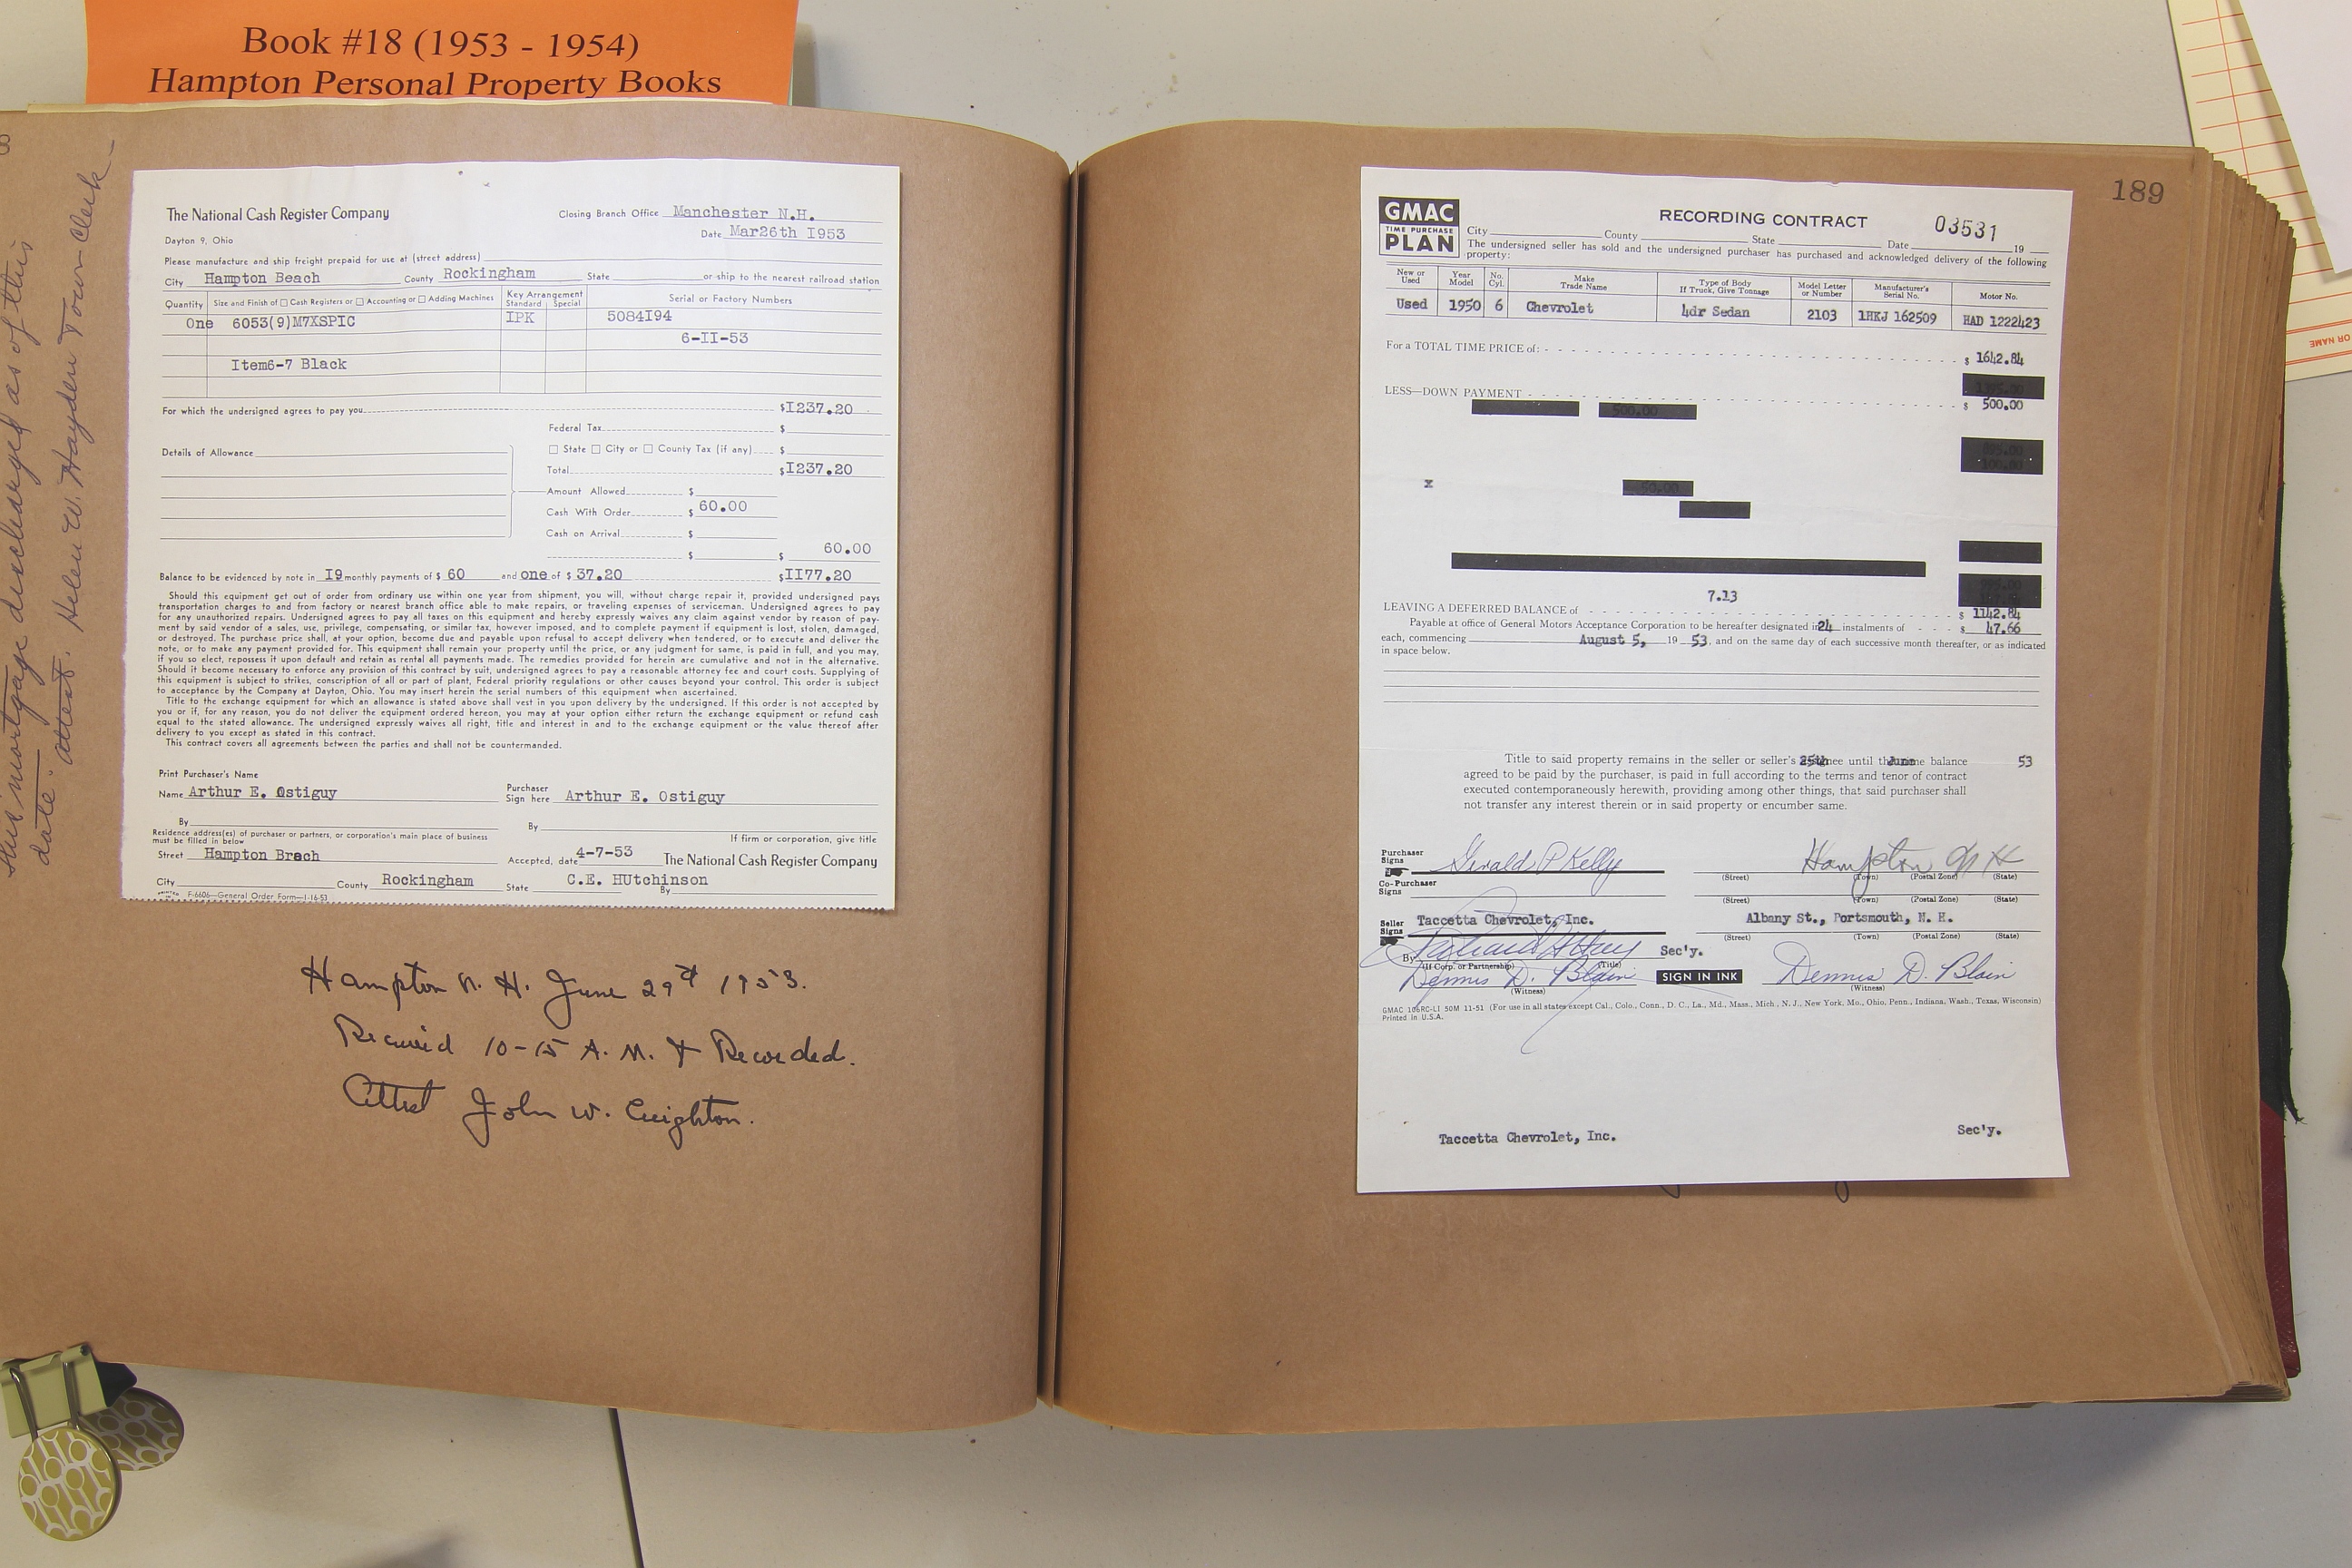 Book #18 (1953 - 1954)
Hampton Personal Property Books
this mortgage discharged as of this
date. attest. Helen W. Hayden Town Clerk
The National Cash Register Company
Dayton 9, Ohio
Closing Branch Office Manchester N.H.
Date Mar26th I953
Please manufacture and ship freight prepaid for use at (street address)
City Hampton Beach County Rockingham State or ship to the nearest railroad station
Quantity Size and Finish of □ Cash Registers or □ Accounting or □ Adding Machines Key Arrangement Standard Special Serial or Factory Numbers
One 6053(9)M7XSPIC IPK 5084I94
6-II-53
Item6-7 Black
For which the undersigned agrees to pay you $I237.20
Federal Tax $
□ State □ City or □ County Tax (if any) $
Details of Allowance
Total $I237.20
Amount Allowed $
Cash With Order $ 60.00
Cash on Arrival $
$ $ 60.00
Balance to be evidenced by note in I9 monthly payments of $ 60 and one of $ 37.20 $II77.20
Should this equipment get out of order from ordinary use within one year from shipment, you will, without charge repair it, provided undersigned pays
transportation charges to and from factory or nearest branch office able to make repairs, or traveling expenses of serviceman. Undersigned agrees to pay
for any unauthorized repairs. Undersigned agrees to pay all taxes on this equipment and hereby expressly waives any claim against vendor by reason of pay-
ment by said vendor of a sales, use, privilege, compensating, or similar tax, however imposed, and to complete payment if equipment is lost, stolen, damaged,
or destroyed. The purchase price shall, at your option, become due and payable upon refusal to accept delivery when tendered, or to execute and deliver the
note, or to make any payment provided for. This equipment shall remain your property until the price, or any judgment for same, is paid in full, and you may,
if you so elect, repossess it upon default and retain as rental all payments made. The remedies provided for herein are cumulative and not in the alternative.
Should it become necessary to enforce any provision of this contract by suit, undersigned agrees to pay a reasonable attorney fee and court costs. Supplying of
this equipment is subject to strikes, conscription of all or part of plant, Federal priority regulations or other causes beyond your control. This order is subject
to acceptance by the Company at Dayton, Ohio. You may insert herein the serial numbers of this equipment when ascertained.
Title to the exchange equipment for which an allowance is stated above shall vest in you upon delivery by the undersigned. If this order is not accepted by
you or if, for any reason, you do not deliver the equipment ordered hereon, you may at your option either return the exchange equipment or refund cash
equal to the stated allowance. The undersigned expressly waives all right, title and interest in and to the exchange equipment or the value thereof after
delivery to you except as stated in this contract.
This contract covers all agreements between the parties and shall not be countermanded.
Print Purchaser's Name
Name Arthur E. Ostiguy Purchaser Sign here Arthur E. Ostiguy
By By
Residence address(es) of purchaser or partners, or corporation's main place of business must be filled in below If firm or corporation, give title
Street Hampton Brach Accepted, date 4-7-53 The National Cash Register Company
City County Rockingham State C.E. HUtchinson
By
F-6606—General Order Form—1-16-53
Hampton N. H. June 29th 1953.
Received 10-15 A. M. & Recorded.
Attest John W. Creighton.
189
GMAC
TIME PURCHASE
PLAN
RECORDING CONTRACT 03531
City County State Date 19
The undersigned seller has sold and the undersigned purchaser has purchased and acknowledged delivery of the following
property:
New or Used Year Model No. Cyl. Make Trade Name Type of Body If Truck, Give Tonnage Model Letter or Number Manufacturer's Serial No. Motor No.
Used 1950 6 Chevrolet 4dr Sedan 2103 1HKJ 162509 HAD 1222423
For a TOTAL TIME PRICE of: $ 1642.84
LESS—DOWN PAYMENT $ 500.00
500.00
x
7.13
LEAVING A DEFERRED BALANCE of $ 1142.84
Payable at office of General Motors Acceptance Corporation to be hereafter designated in 24 instalments of $ 47.66
each, commencing August 5, 19 53, and on the same day of each successive month thereafter, or as indicated
in space below.
Title to said property remains in the seller or seller's 25th nee until th June e balance 53
agreed to be paid by the purchaser, is paid in full according to the terms and tenor of contract
executed contemporaneously herewith, providing among other things, that said purchaser shall
not transfer any interest therein or in said property or encumber same.
Purchaser Signs Gerald P Kelly Hampton N H
(Street) (Town) (Postal Zone) (State)
Co-Purchaser Signs
(Street) (Town) (Postal Zone) (State)
Seller Signs Taccetta Chevrolet, Inc. Albany St., Portsmouth, N. H.
(Street) (Town) (Postal Zone) (State)
By Sec'y.
(If Corp. or Partnership) (Title)
Dennis D. Blain SIGN IN INK Dennis D. Blain
(Witness) (Witness)
GMAC 106RC-LI 50M 11-51 (For use in all states except Cal., Colo., Conn., D. C., La., Md., Mass., Mich., N. J., New York, Mo., Ohio, Penn., Indiana, Wash., Texas, Wisconsin)
Printed in U.S.A.
Taccetta Chevrolet, Inc. Sec'y.
OR NAME